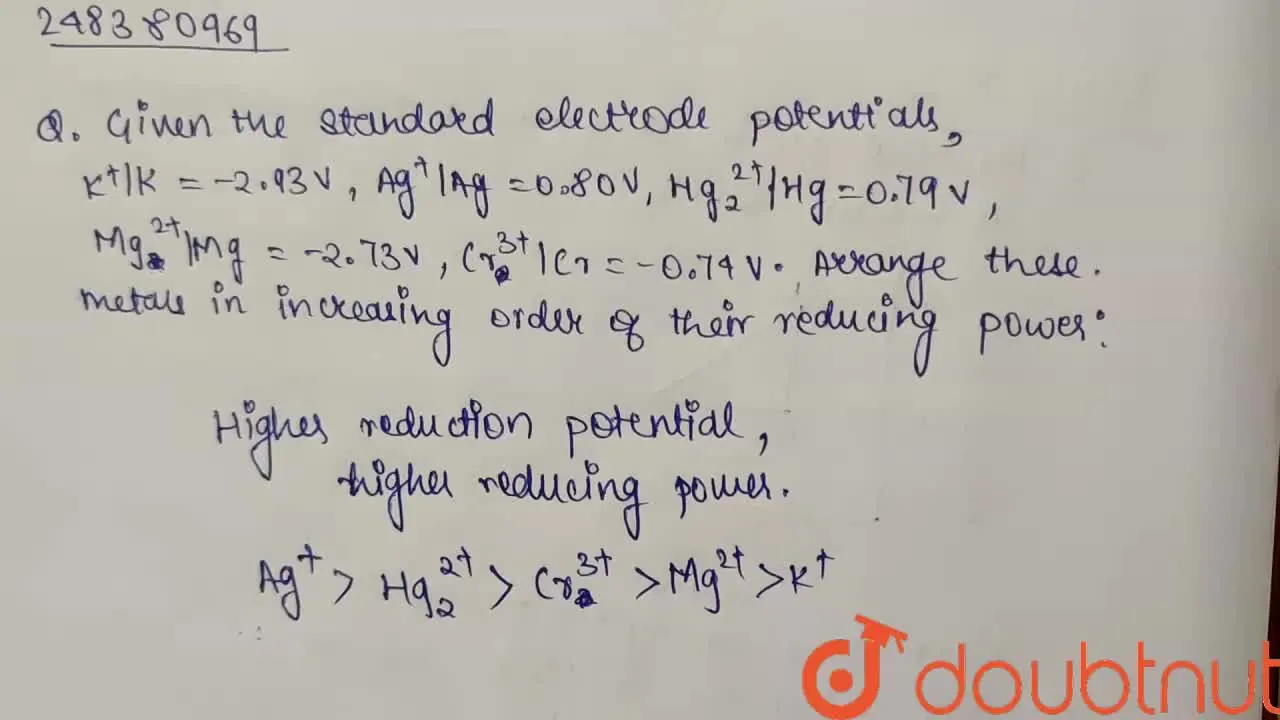 248380969
Q. Given the standard electrode potentials,
K⁺/K = -2.93V, Ag⁺/Ag = 0.80V, Hg₂²⁺/Hg = 0.79V,
Mg²⁺/Mg = -2.73V, Cr³⁺/Cr = -0.74V. Arrange these.
metals in increasing order of their reducing power:
Higher reduction potential,
higher reducing power.
Ag⁺ > Hg₂²⁺ > Cr³⁺ > Mg²⁺ > K⁺
doubtnut